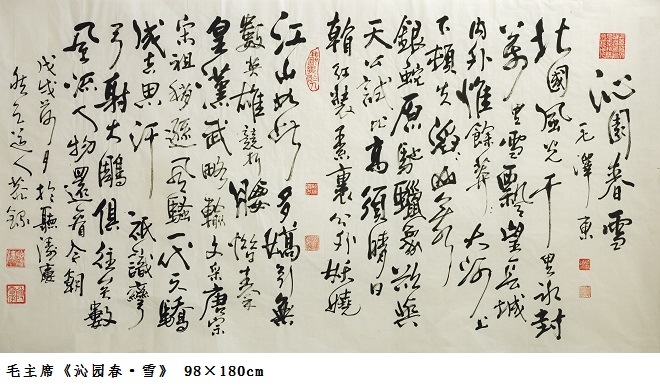 沁園春雪
毛澤東
北國風光千里冰封
萬里雪飄望長城
内外惟餘莽莽大河上
下頓失滔滔山舞
銀蛇原馳蠟象欲與
天公試比高須晴日
看紅裝素裹分外妖嬈
江山如此多嬌引無
數英雄競折腰惜秦
皇漢武略輸文采唐宗
宋祖稍遜風騷一代天驕
成吉思汗祇識彎
弓射大鵰俱往矣數
風流人物還看今朝
戊戌月於聽濤
道人錄
毛主席《沁园春·雪》 98×180cm